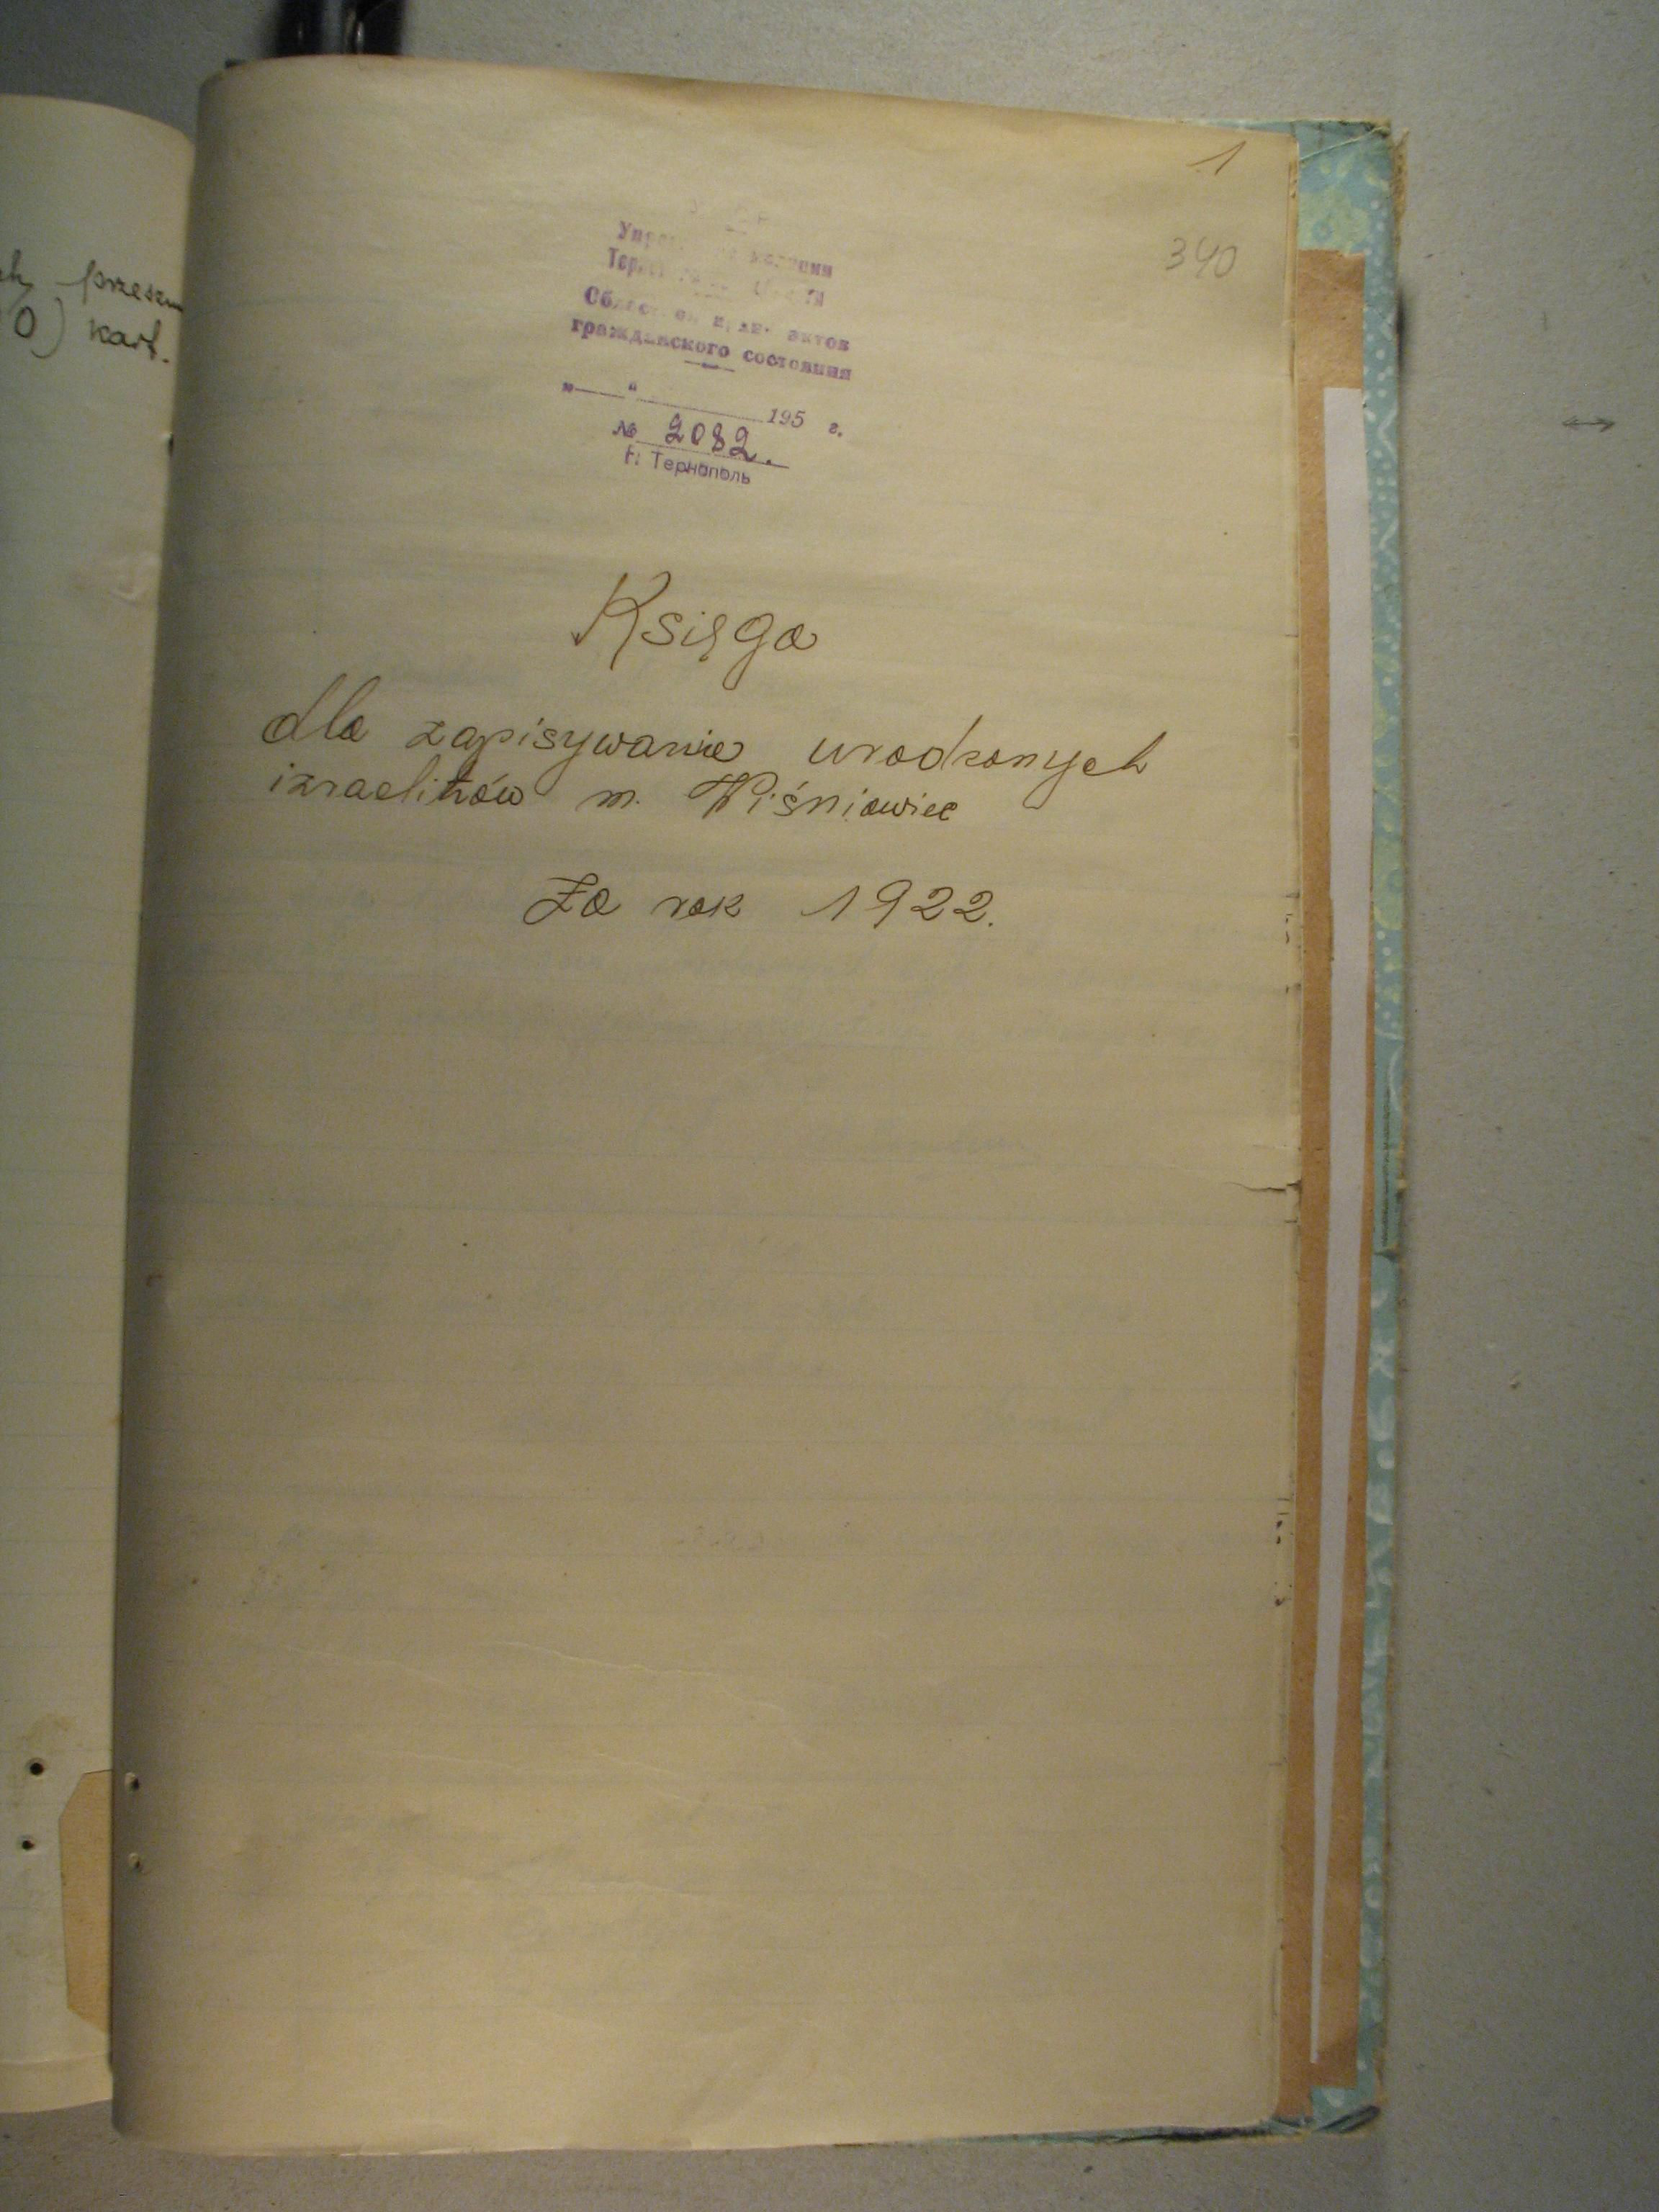 przeszn
0) kart.
1
340
гражданского состояния
"—" 195 г.
№ 2082.
г. Тернополь
Księga
dla zapisywania urodzonych
izraelitów m. Wiśniowiec
Za rok 1922.